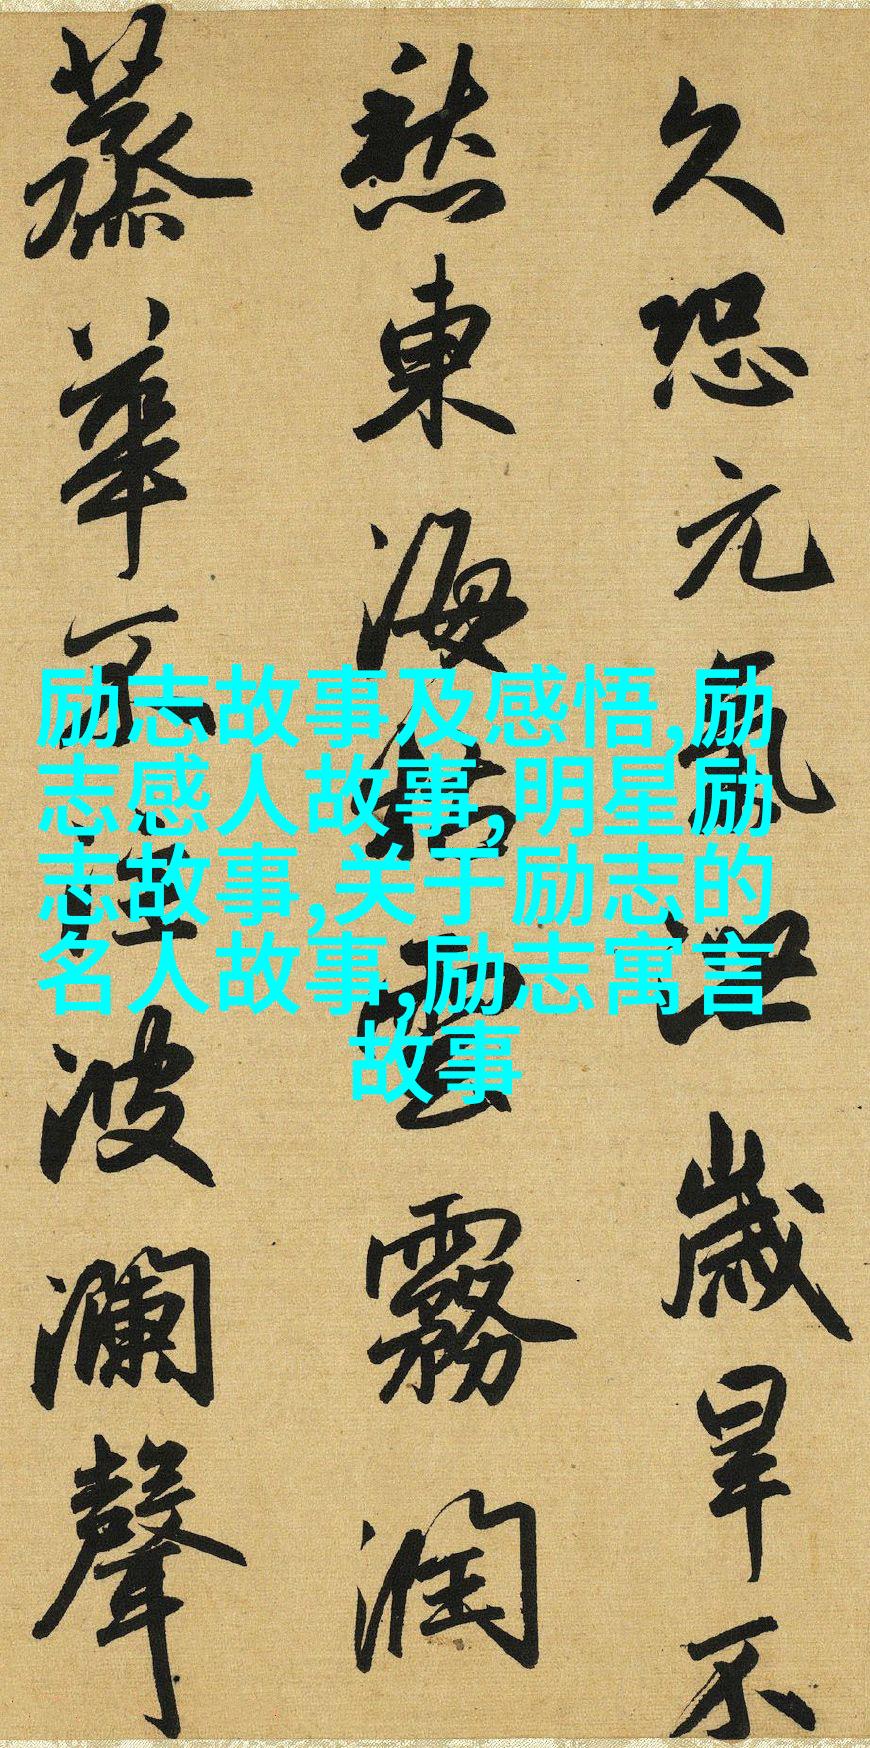 久恐元氣泄歲旱不
愁東海枯雲霧潤
蒸華不注波瀾聲
励志故事及感悟,励
志感人故事,明星励
志故事,关于励志的
名人故事,励志寓言
故事